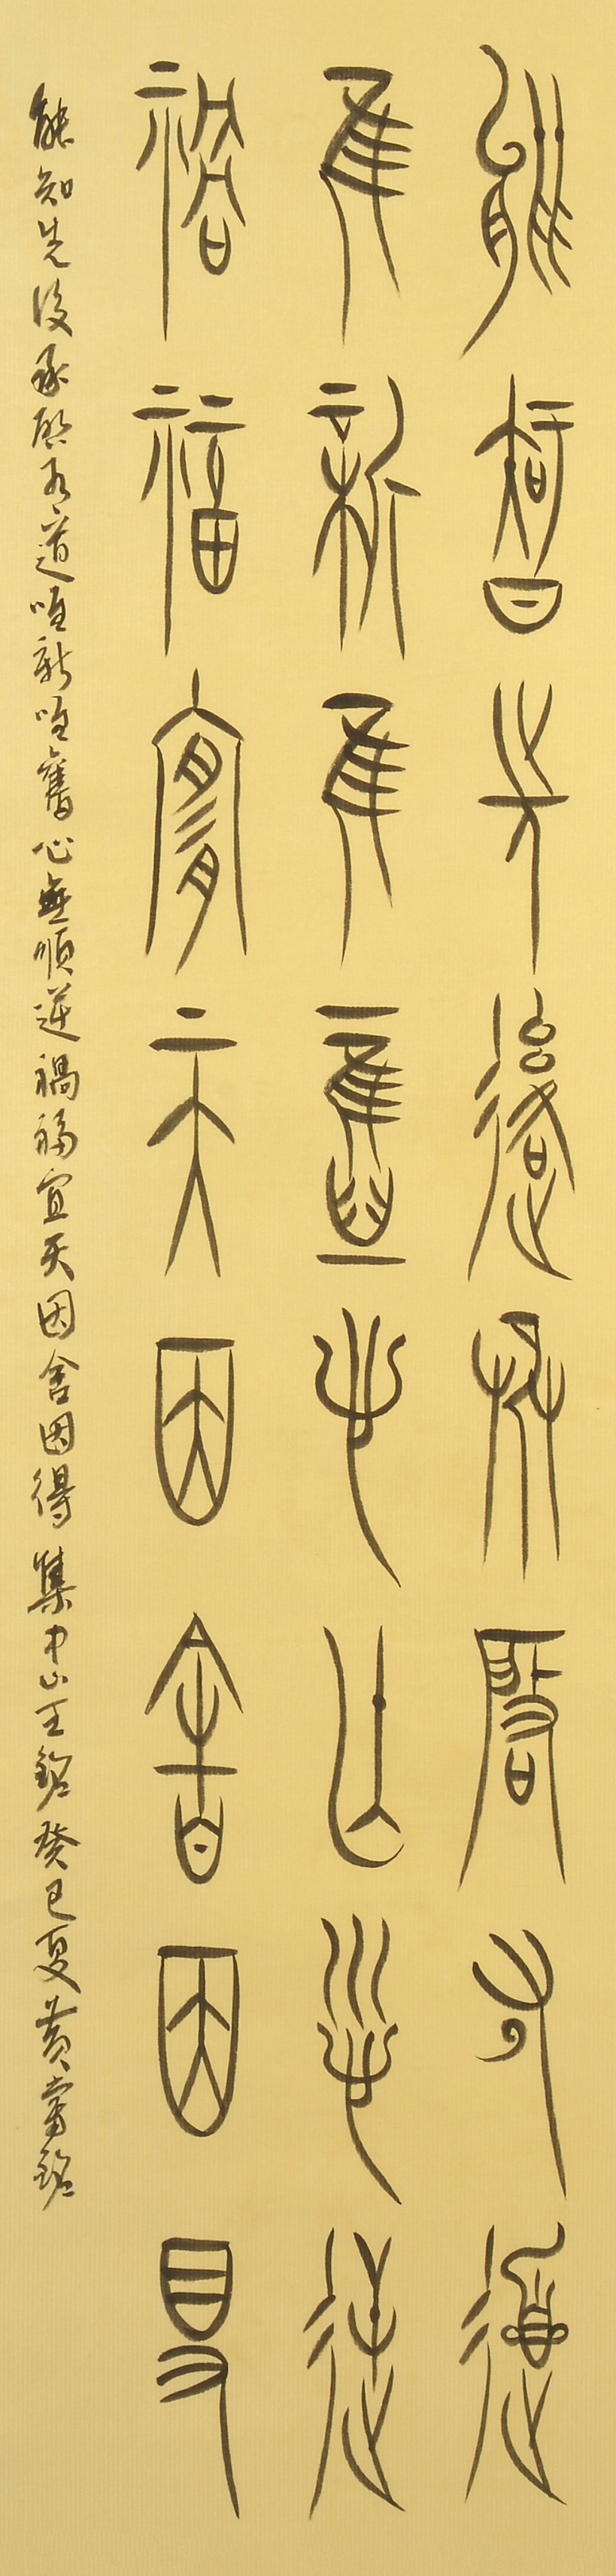 能知先後承啟有道
唯新唯舊心亡順逆
禍福宜天因舍因得
能知先後承啟有道唯新唯舊心無順逆禍福宜天因舍因得集中山王銘癸巳夏黃常銘